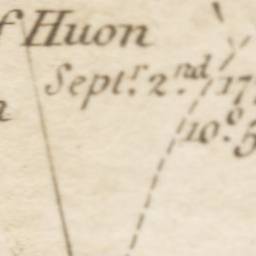 f Huon
Septr. 2nd. 17
n
10°5